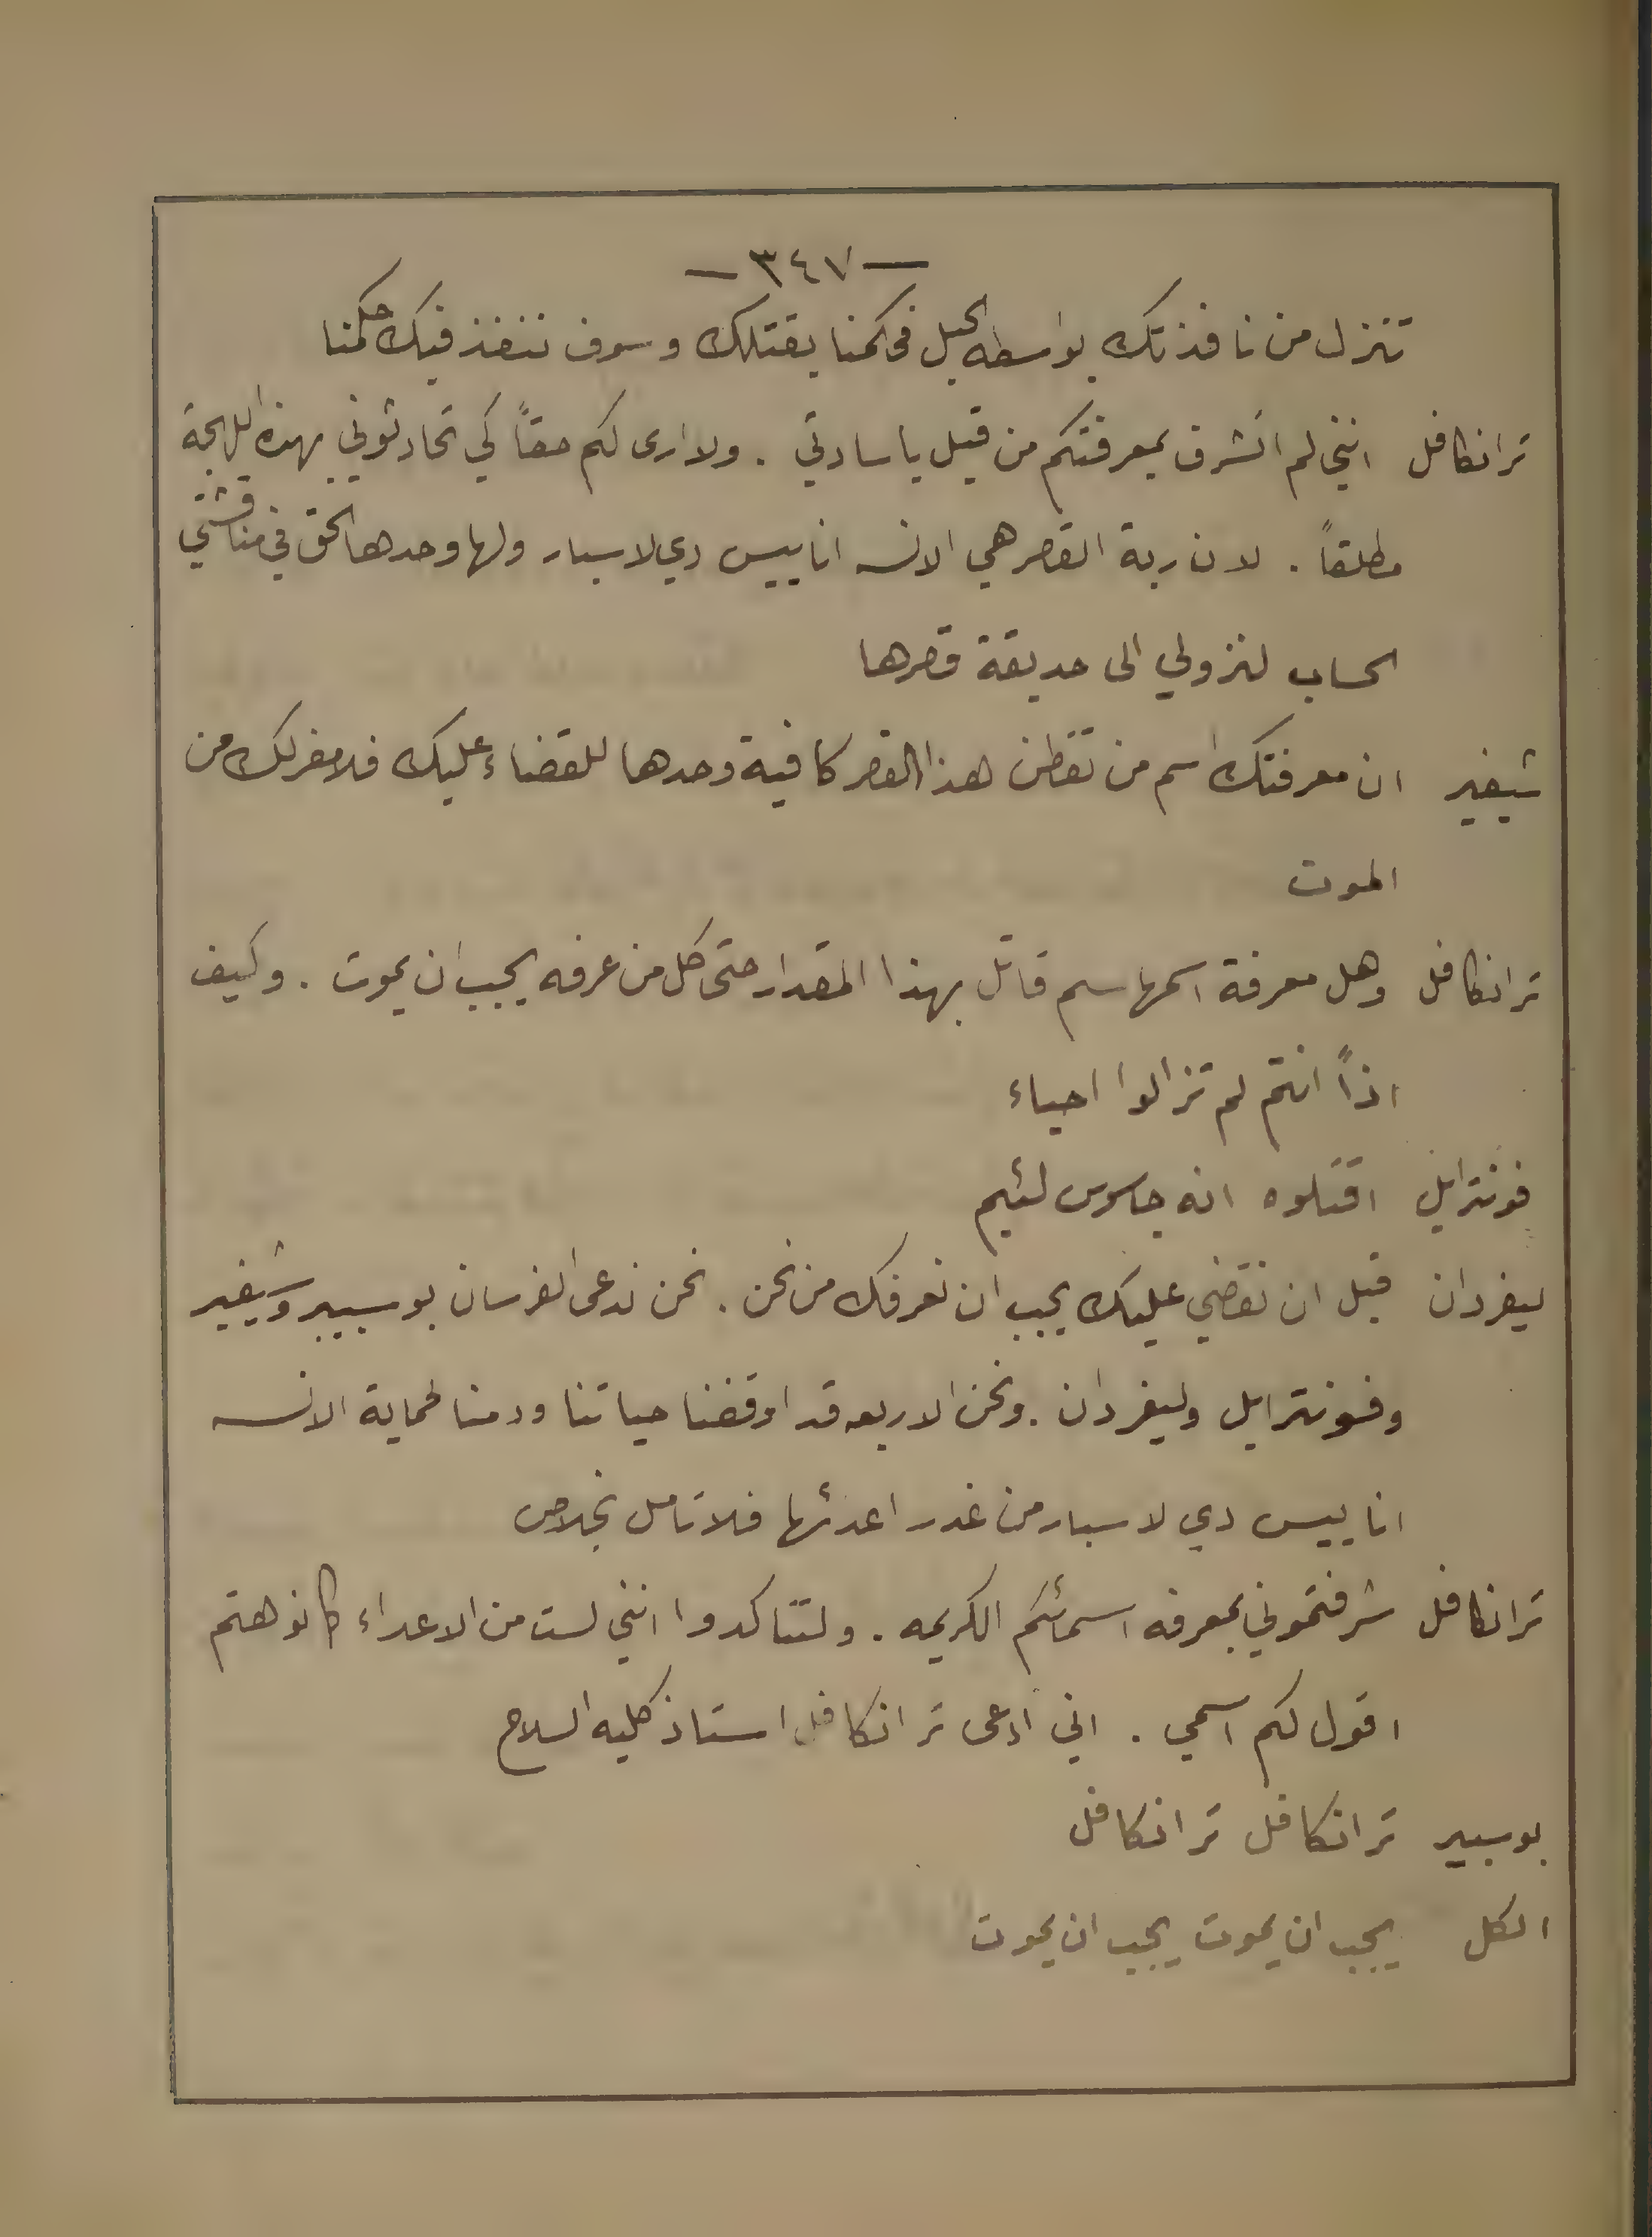 — ٣٤٧ —
تنزل من نافذتك بواسطه الحبل فحكمنا بقتلك وسوف ننفذ فيك حكمنا
ترانكافل انني لم اتشرف بمعرفتكم من قبل يا سادتي . ولا ارى لكم حقاً كي تحادثوني بهذه اللهجة
مطلقاً . لان ربة القصر هي الانسه اناييس دي لاسبار ولها وحدها الحق في مناقشتي
الحساب لنزولي الى حديقة قصرها
شيفير ان معرفتك اسم من تقطن هذا القصر كافية وحدها للقضاء عليك فلا مفر لك من
الموت
ترانكافل وهل معرفة اسمها سم قاتل بهذا المقدار حتى كل من عرفه يجب ان يموت . وكيف
اذاً انتم لم تزالوا احياء
فونترايل اقتلوه انه جاسوس لئيم
ليفردان قبل ان نقضي عليك يجب ان نعرفك من نحن . نحن ندعى الفرسان بوسيير وشيفير
وفونترايل وليفردان . ونحن الاربعه قد اوقفنا حياتنا ودمنا لحماية الانسه
اناييس دي لاسبار من غدر اعدئها فلا تامل بخلاص
ترانكافل شرفتموني بمعرفه اسمائكم الكريمه . ولتتاكدوا انني لست من الاعداء كما نوهتم
اقول لكم اسمي . اني ادعى ترانكافل استاذ كليه السلاح
بوسيير ترانكافل ترانكافل
الكل يجب ان يموت يجب ان يموت